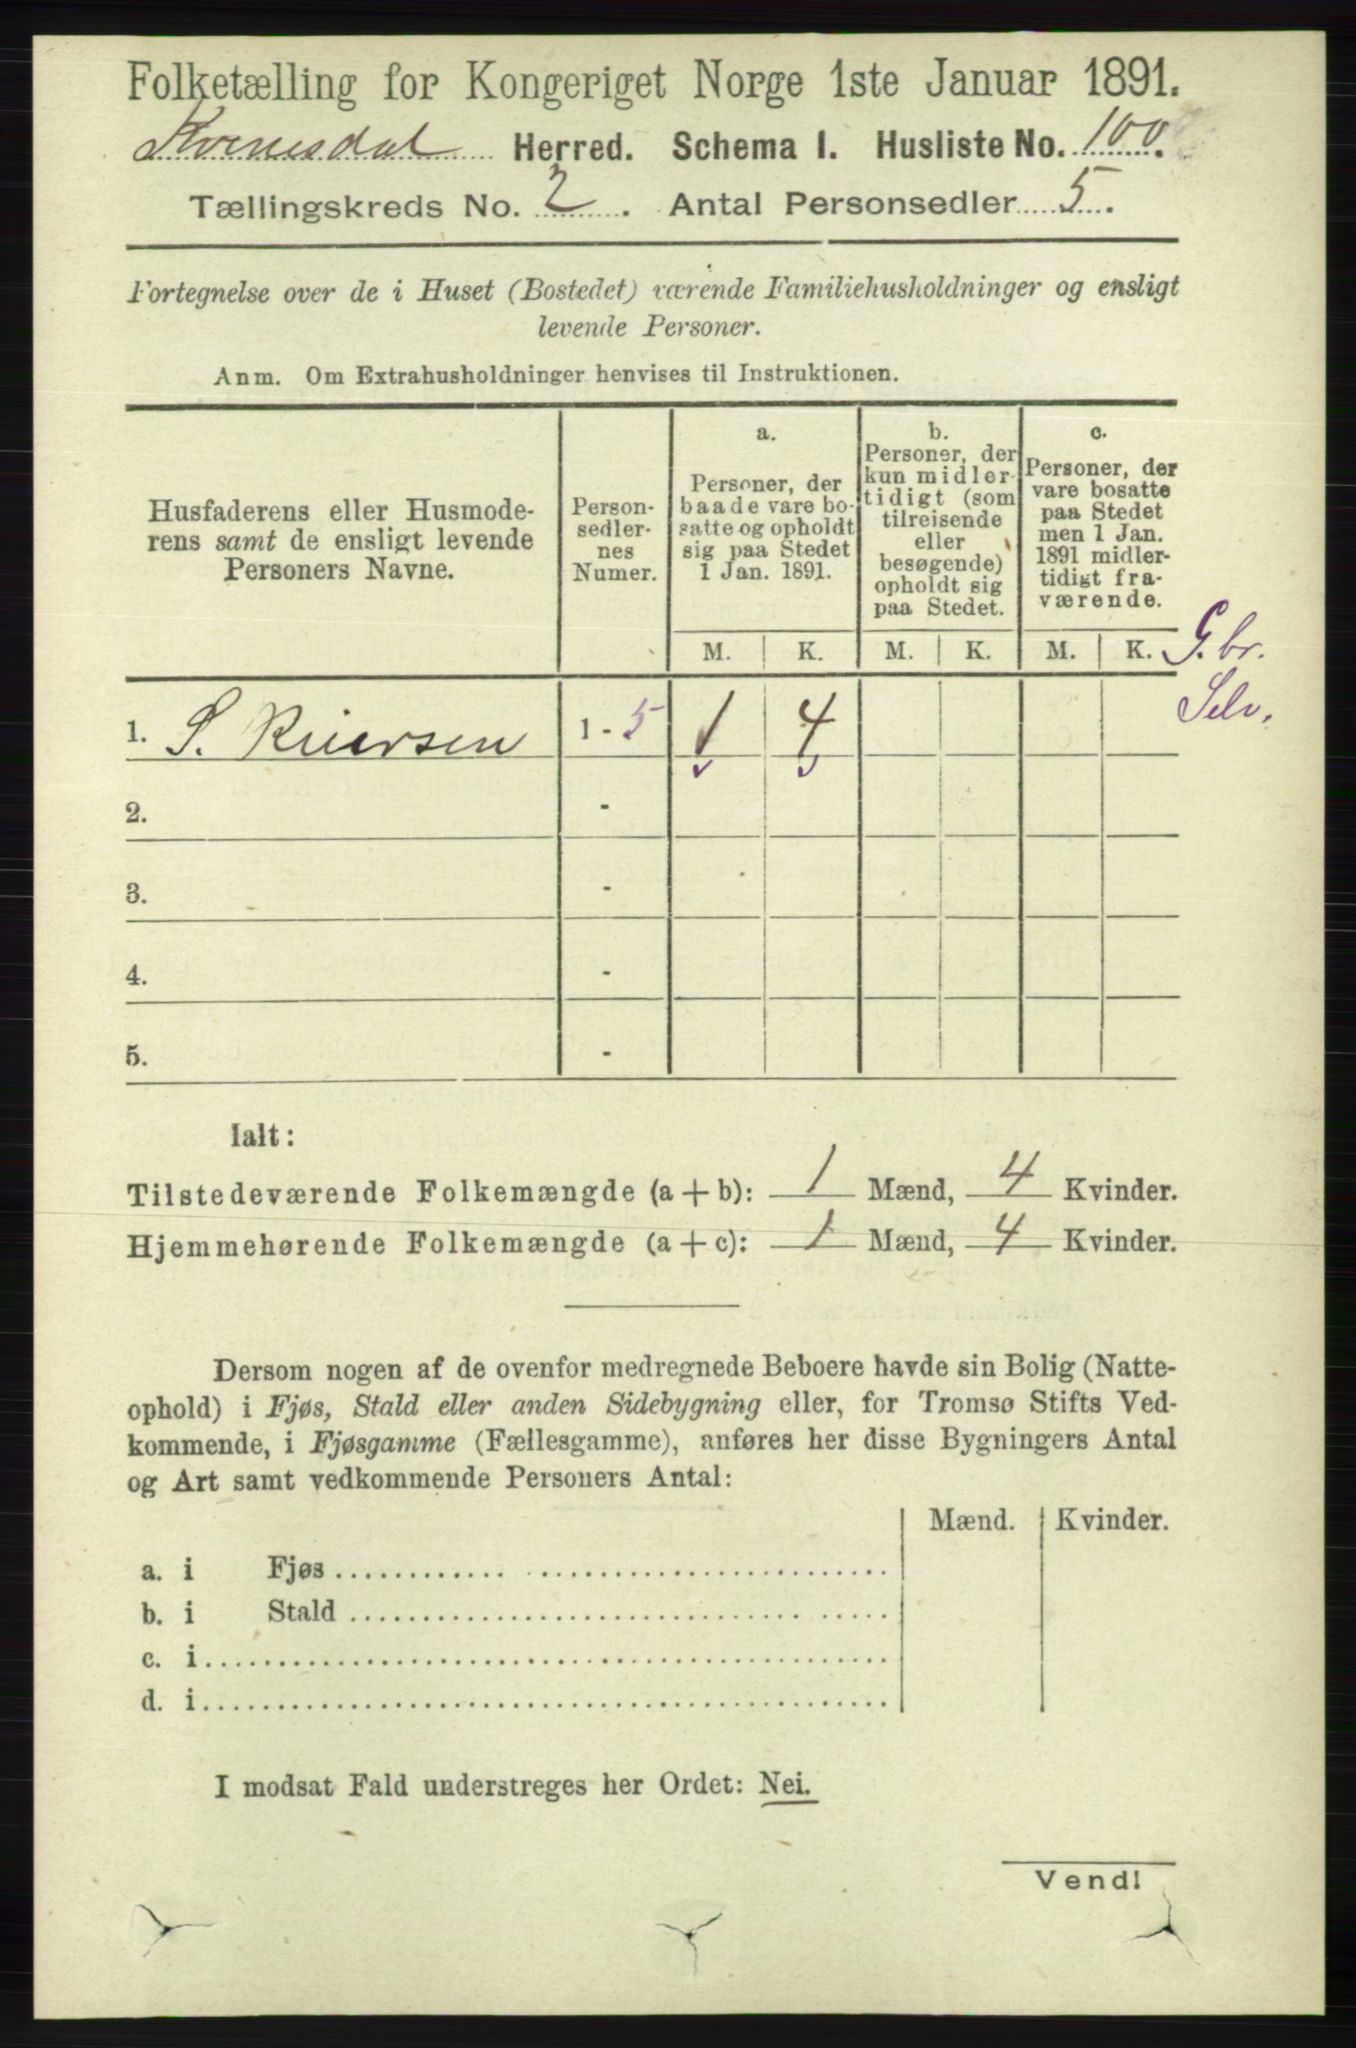 Folketælling for Kongeriget Norge 1ste Januar 1891.
Kvinesdal Herred. Schema I. Husliste No. 100.
Tællingskreds No. 2. Antal Personsedler 5.
Fortegnelse over de i Huset (Bostedet) værende Familiehusholdninger og ensligt
levende Personer.
Anm. Om Extrahusholdninger henvises til Instruktionen.
Husfaderens eller Husmode-
rens samt de ensligt levende
Personers Navne.
Person-
sedler-
nes
Numer.
a.
Personer, der
baade vare bo-
satte og opholdt
sig paa Stedet
1 Jan. 1891.
b.
Personer, der
kun midler-
tidigt (som
tilreisende
eller
besøgende)
opholdt sig
paa Stedet.
c.
Personer, der
vare bosatte
paa Stedet
men 1 Jan.
1891 midler-
tidigt fra-
værende.
M. K. M. K. M. K. G.br.
Selv.
1. S. 1 - 5 1 4
2. -
3. -
4. -
5. -
Ialt:
Tilstedeværende Folkemængde (a + b): 1 Mænd, 4 Kvinder.
Hjemmehørende Folkemængde (a + c): 1 Mænd, 4 Kvinder.
Dersom nogen af de ovenfor medregnede Beboere havde sin Bolig (Natte-
ophold) i Fjøs, Stald eller anden Sidebygning eller, for Tromsø Stifts Ved-
kommende, i Fjøsgamme (Fællesgamme), anføres her disse Bygningers Antal
og Art samt vedkommende Personers Antal:
Mænd. Kvinder.
a. i Fjøs
b. i Stald
c. i
d. i
I modsat Fald understreges her Ordet: Nei.
Vend!